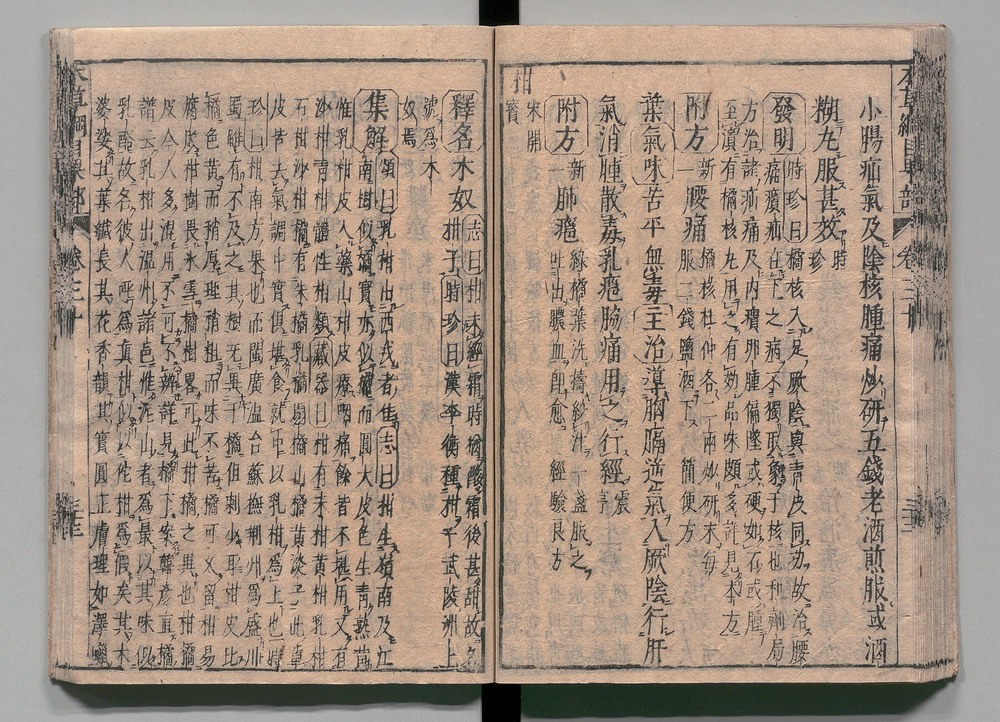 小腸疝氣及陰核腫痛炒研五錢老酒煎服或酒
糊丸服甚效時珍
發明時珍曰橘核入足厥陰與青皮同功故治腰
痛㿉疝在下之病不獨取象于核也和劑局
方治諸疝痛及內㿉卵腫偏墜或硬如石或腫
至潰有橘核丸用之有效品味頗多詳見本方
附方新一腰痛橘核杜仲各二兩炒研末每
服二錢鹽酒下簡便方
葉氣味苦平無毒主治導胸膈逆氣入厥陰行肝
氣消腫散毒乳癰脇痛用之行經震亨
附方新一肺癰綠橘葉洗擣絞汁一盞服之
吐出膿血即愈經驗良方
柑宋開寶
釋名木奴志曰柑未經霜時猶酸霜後甚甜故名
柑子時珍曰漢李衡種柑于武陵洲上
號為木
奴焉
集解頌曰乳柑出西戎者佳志曰柑生嶺南及江
南樹似橘實亦似橘而圓大皮色生青熟黃
惟乳柑皮入藥山柑皮療咽痛餘皆不堪用又有
沙柑青柑體性相類藏器曰柑有朱柑黃柑乳柑
石柑沙柑橘有朱橘乳橘塌橘山橘黃淡子此輩
皮皆去氣調中實俱堪食就中以乳柑為上也時
珍曰柑南方果也而閩廣温台蘇撫荊州為盛川
蜀雖有不及之其樹无異于橘但刺少耳柑皮比
橘色黃而稍厚理稍粗而味不苦橘可久留柑易
腐敗柑樹畏冰雪橘樹略可此柑橘之異也柑橘
皮今人多混用不可不辨詳見橘下案韓彥直橘
譜云乳柑出温州諸邑惟泥山者為最以其味似
乳酪故名彼人呼為真柑似以他柑為假矣其木
婆娑其葉纖長其花香韻其實圓正膚理如澤蠟